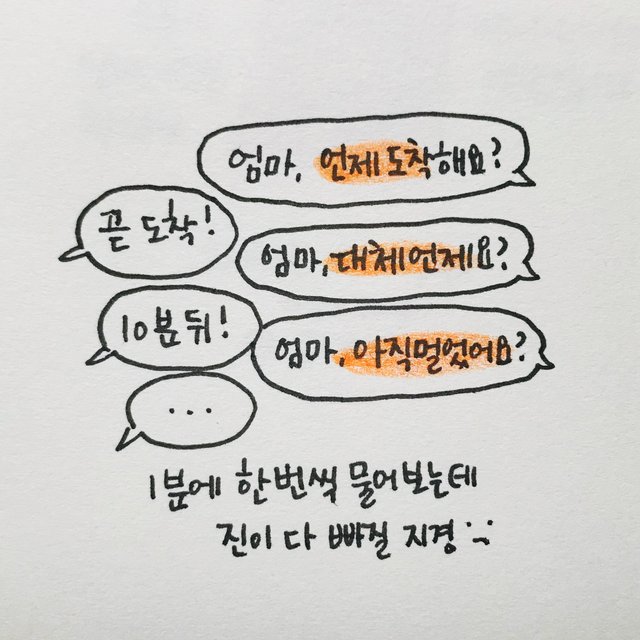 엄마, 언제 도착해요?
곧 도착!
엄마, 대체 언제요?
10분 뒤!
엄마, 아직 멀었어요?
...
1분에 한번씩 물어보는데
진이 다 빠질 지경